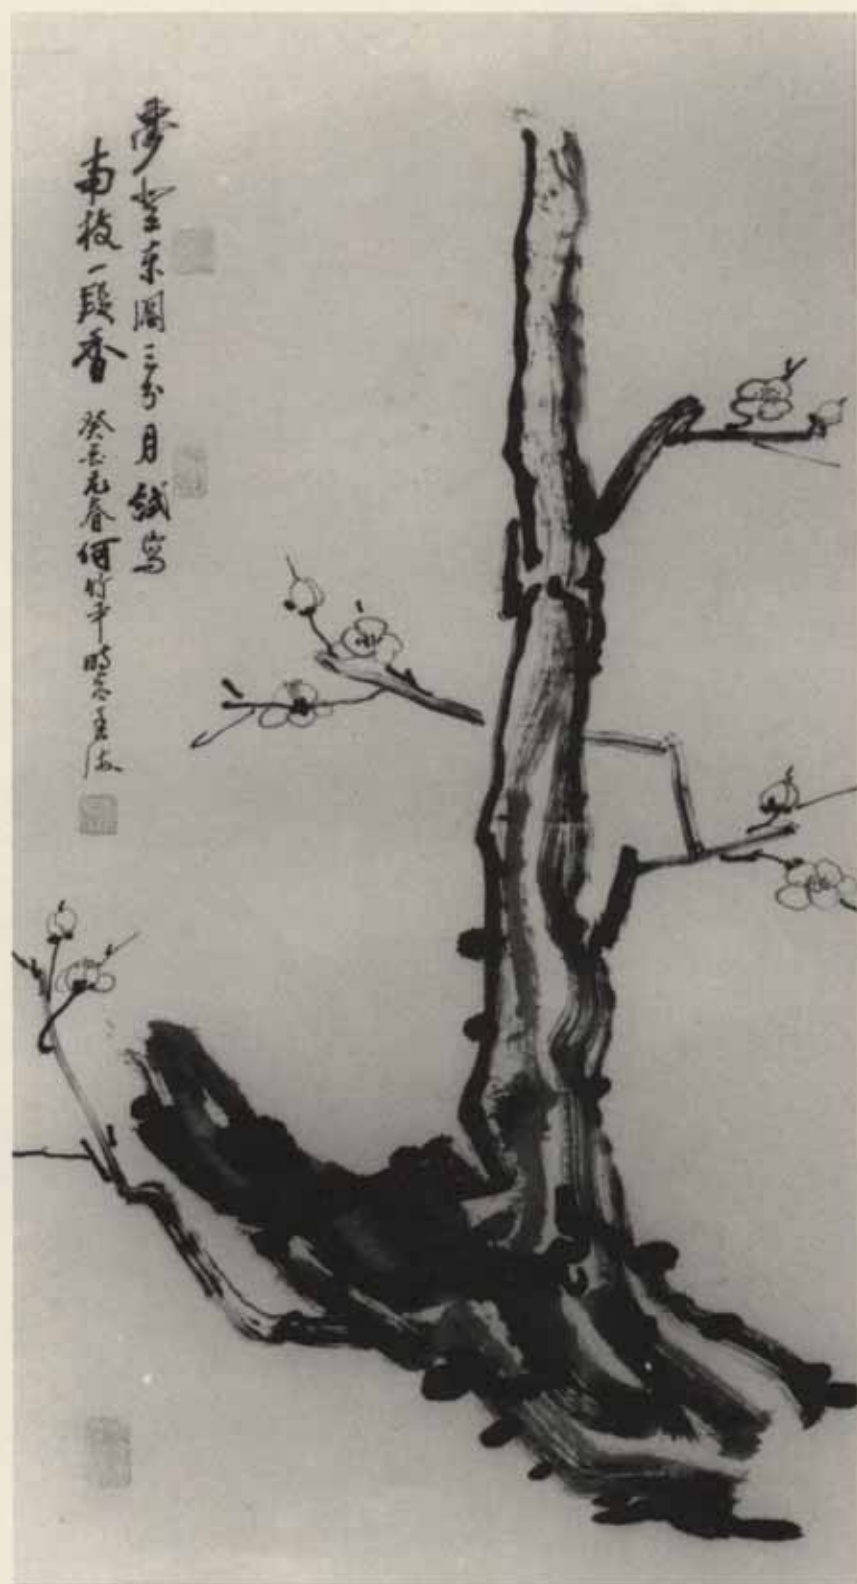 夢登東閣三分月試寫
南枝一段香 癸丑元春何竹平時客